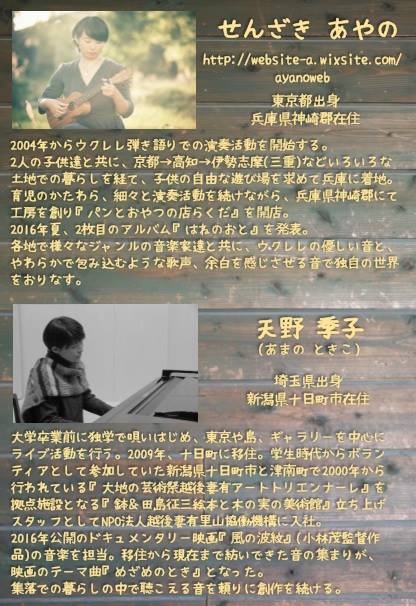 せんざき あやの
http://website-a.wixsite.com/
ayanoweb
東京都出身
兵庫県神崎郡在住
2004年からウクレレ弾き語りでの演奏活動を開始する。
2人の子供達と共に、京都→高知→伊勢志摩(三重)などいろいろな
土地での暮らしを経て、子供の自由な遊び場を求めて兵庫に着地。
育児のかたわら、細々と演奏活動を続けながら、兵庫県神崎郡にて
工房を創り『パンとおやつの店らくだ』を開店。
2016年夏、2枚目のアルバム『はねのおと』を発表。
各地で様々なジャンルの音楽家達と共に、ウクレレの優しい音と、
やわらかで包み込むような歌声、余白を感じさせる音で独自の世界
をおりなす。
天野 季子
(あまの ときこ)
埼玉県出身
新潟県十日町市在住
大学卒業前に独学で唄いはじめ、東京や島、ギャラリーを中心に
ライブ活動を行う。2009年、十日町に移住。学生時代からボラン
ティアとして参加していた新潟県十日町市と津南町で2000年から
行われている『大地の芸術祭越後妻有アートトリエンナーレ』を
拠点施設となる『鉢&田島征三絵本と木の実の美術館』立ち上げ
スタッフとしてNPO法人越後妻有里山協働機構に入社。
2016年公開のドキュメンタリー映画『風の波紋』(小林茂監督作
品)の音楽を担当。移住から現在まで紡いできた音の集まりが、
映画のテーマ曲『めざめのとき』となった。
集落での暮らしの中で聴こえる音を頼りに創作を続ける。